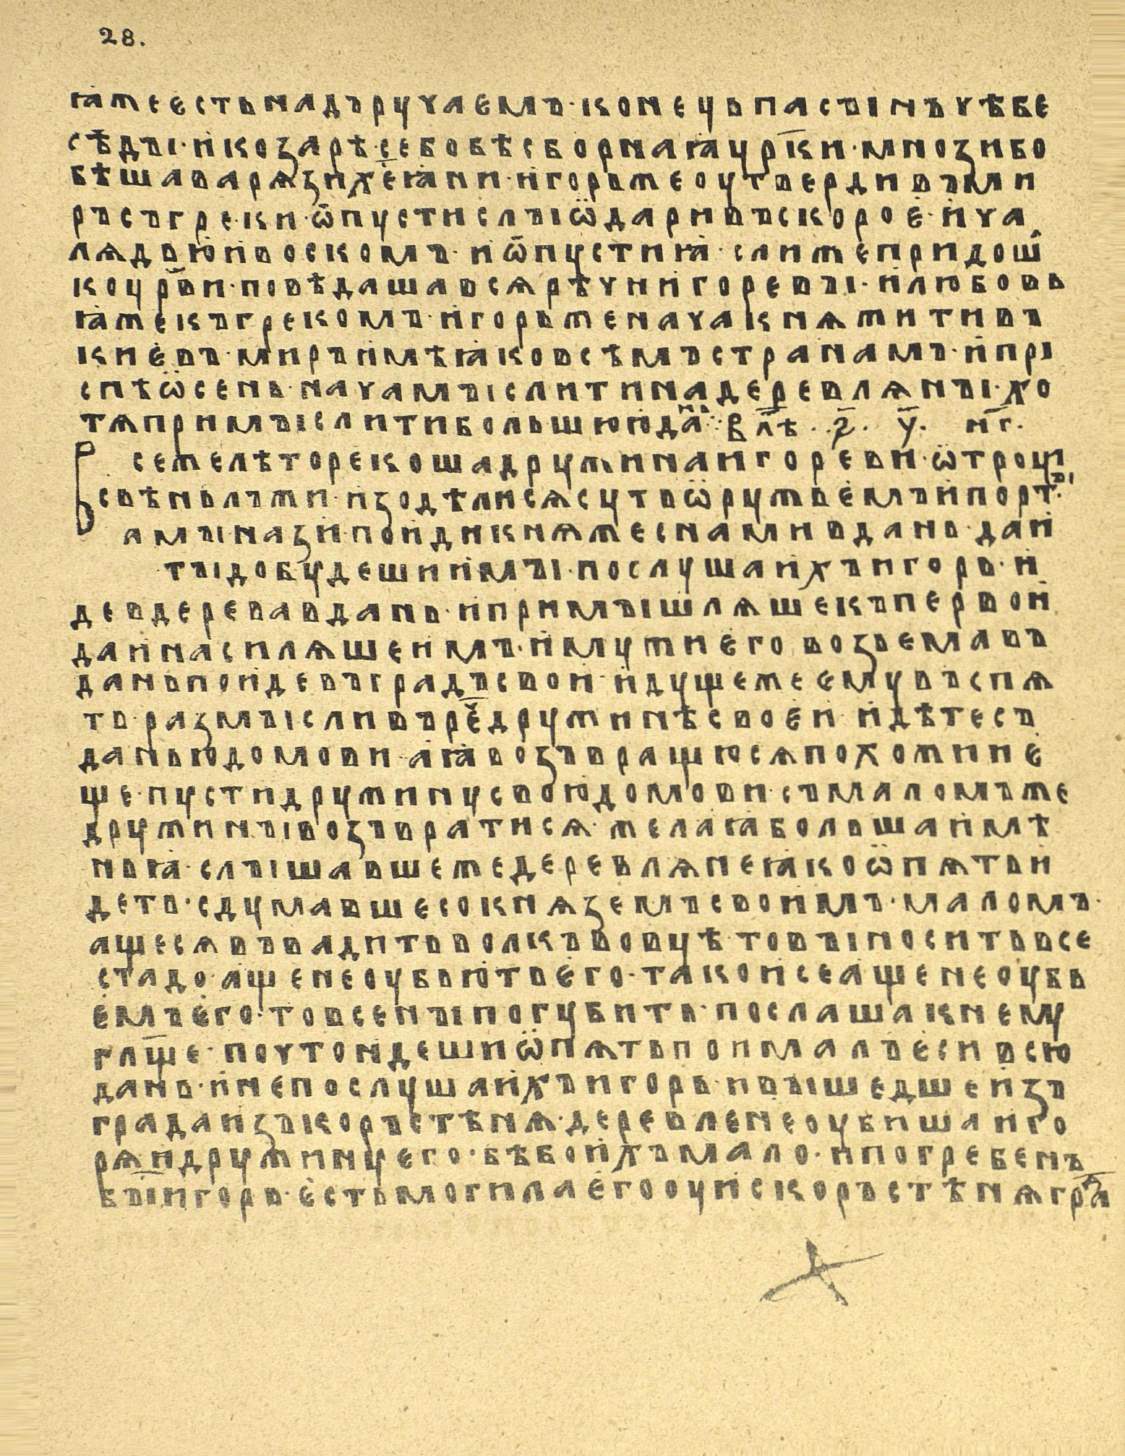 28.
ꙗжеестьнадъручаемъ·конецьпасъінъчѣбе
сѣдъі·икозарѣ·себобѣсборнаꙗцр҃ки·мнозибо
бѣшаварязихс҃еꙗни·игорьжеоутвердивъми
ръсъгреки·ѿпустислъіѡдаривъскорое·ича
лядьюивоскомъ·иѿпустиꙗ·слижепридош
коцр҃ви·повѣдашавсярѣчиигоревъі·илюбовь
ꙗжекъгрекомъ·игорьженачакняжитивъ
киевъ·миръимѣꙗковсѣмъстранамъ·ипрі
спѣѡсень·начамъіслитинадеревлянъі·хо
тяпримъіслитибольшююда҃нь:·вл҃ѣ·҂ѕ҃·у҃·нг҃·
Всежелѣторекошадружинаигореви·ѡтроци
свѣньлъжи·изодѣлисясутьѡружьемъипортъ·
амъінази·поидикняжеснамивдань·даи
тъідобудешиимъі·послушаихъигорь·и
девдеревавдань·ипримъішляшекъпервои
даниинасиляшеимъ·имужиего·возъемавъ
даньпоидевъградъсвои·идущежеемувъспя
ть·размъісливъре҃чдружинѣсвоеи·идѣтесъ
даньюдомови·аꙗвозъвращюсяпохожиие
ще·пустидружинусвоюдомови·съмаломъже
дружинъівозъвратися·желаꙗбольшаимѣ
ньꙗ·слъішавшежедеревлянеꙗкоѡпятьи
деть·сдумавшесокняземъсвоимъ·маломъ·
ащесявъвадитьволкъвовцѣ·товъіноситьвсе
стадо·ащенеоубьютьего·такоисеащенеоубь
емъего·товсенъіпогубить·послашакнему
гл҃ще·почтоидешиѡпять·поималъесивсю
дань·инепослушаихъигорь·ивъішедшеизъ
градаизъкоръстѣня·деревленеоубишаиго
ряидружинуего·бѣбоихъмало·ипогребенъ
бъ҃іигорь·естьмогилаегооуискоръстѣнягра҃